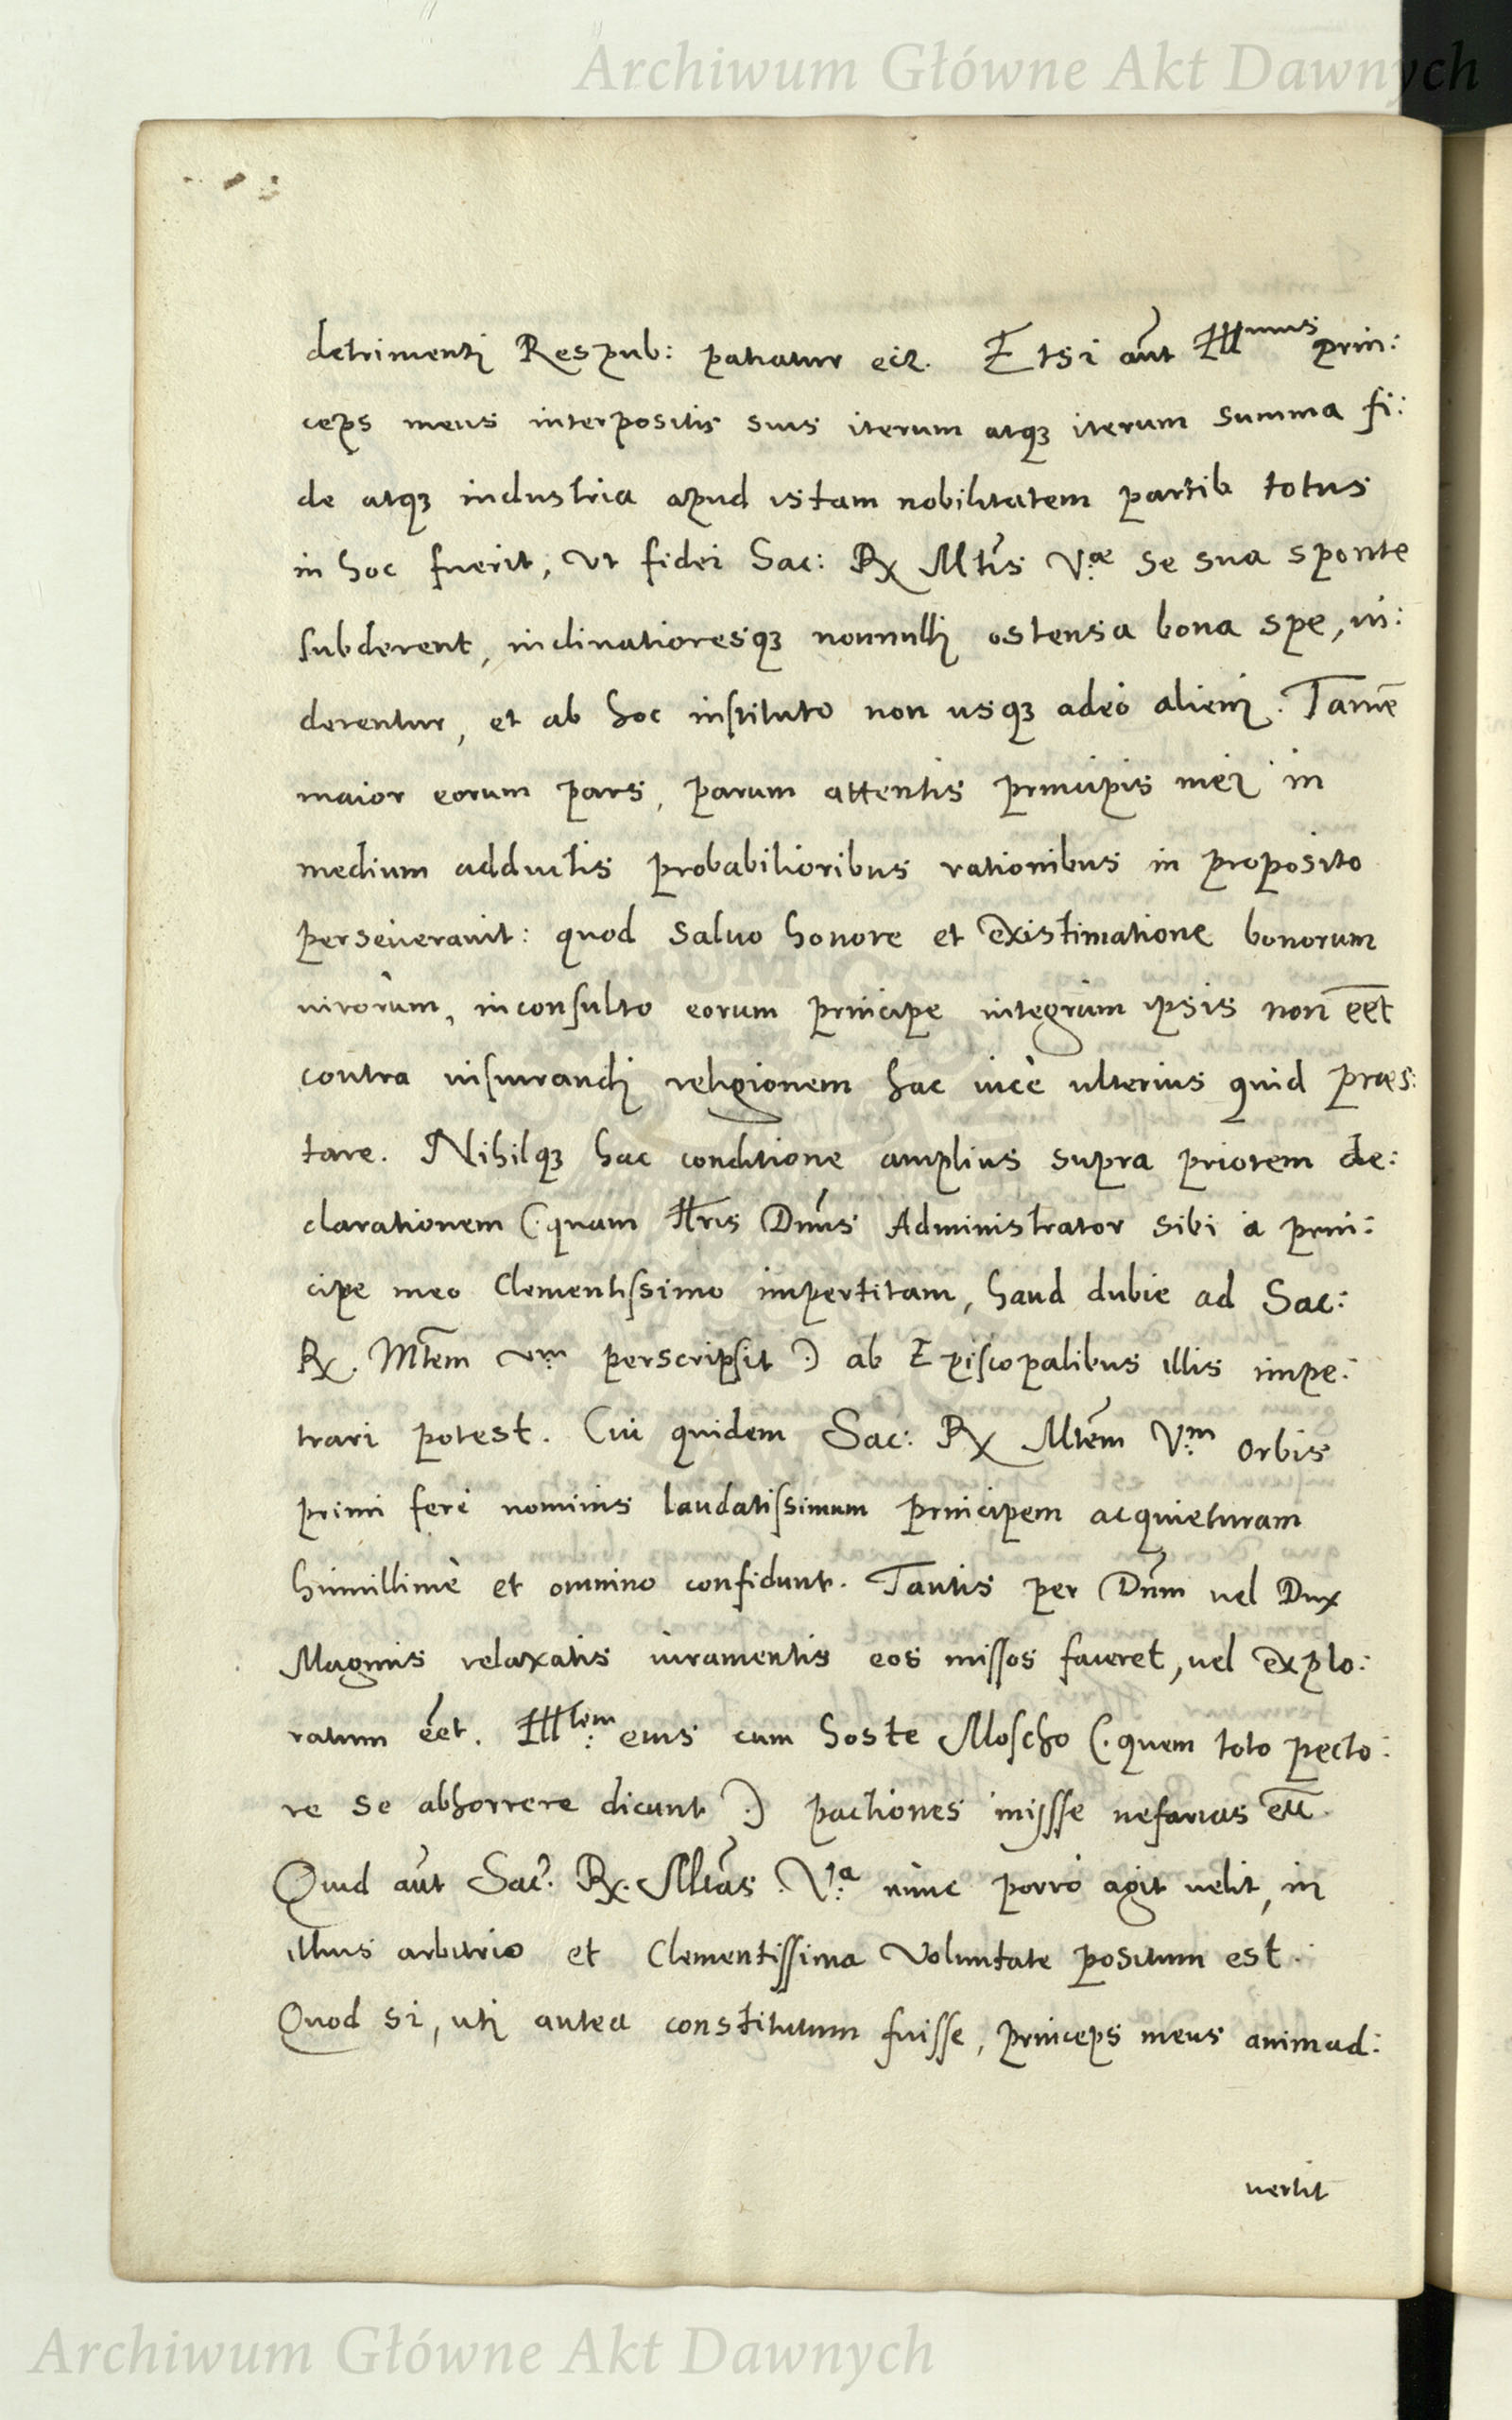 Archiwum Główne Akt Dawnych
detrimenti Respub: patiatur etc. Etsi aūt Illmus prin:
ceps meus interpositis suis iterum atqꝫ iterum summa fi:
de atqꝫ industria apud istam nobilitatem partib totus
in hoc fuerit, vt fidei Sac: Rx Mtis V:æ se sua sponte
subderent, inclinatioresqꝫ nonnulli ostensa bona spe, ui:
derentur, et ab hoc instituto non usqꝫ adeò alieni. Tamē
maior eorum pars, parum attentis principis mei in
medium adductis probabilioribus rationibus in proposito
perseuerauit: quod saluo honore et existimatione bonorum
uirorum, inconsulto eorum principe integrum ipsis non eēt
contra iusiurandi religionem hac uice ulterius quid præs:
tare. Nihilqꝫ hac conditione amplius supra priorem de:
clarationem (: quam Illris Dnūs Administrator sibi à prin:
cipe meo Clementissimo impertitam, haud dubie ad Sac:
Rx. Mtem V:m perscripsit :) ab Episcopalibus illis impe:
trari potest. Cui quidem Sac: Rx Mtem V:m orbis
primi ferè nominis laudatissimum principem acquieturam
humillimè et omnino confidunt. Tantis per Dūm uel Dux
Magnus relaxatis iuramentis eos missos faceret, uel explo:
ratum eēt. Ill:tem eius cum hoste Moscho (: quem toto pecto:
re se abhorrere dicunt :) pactiones inisse nefarias etc.
Quid aūt Sac: Rx. Mtas. V:a nunc porrò agit uelit, in
illius arbitrio et Clementissima Voluntate positum est.
Quod si, uti antea constitutum fuisse, princeps meus animad:
uertit
Archiwum Główne Akt Dawnych